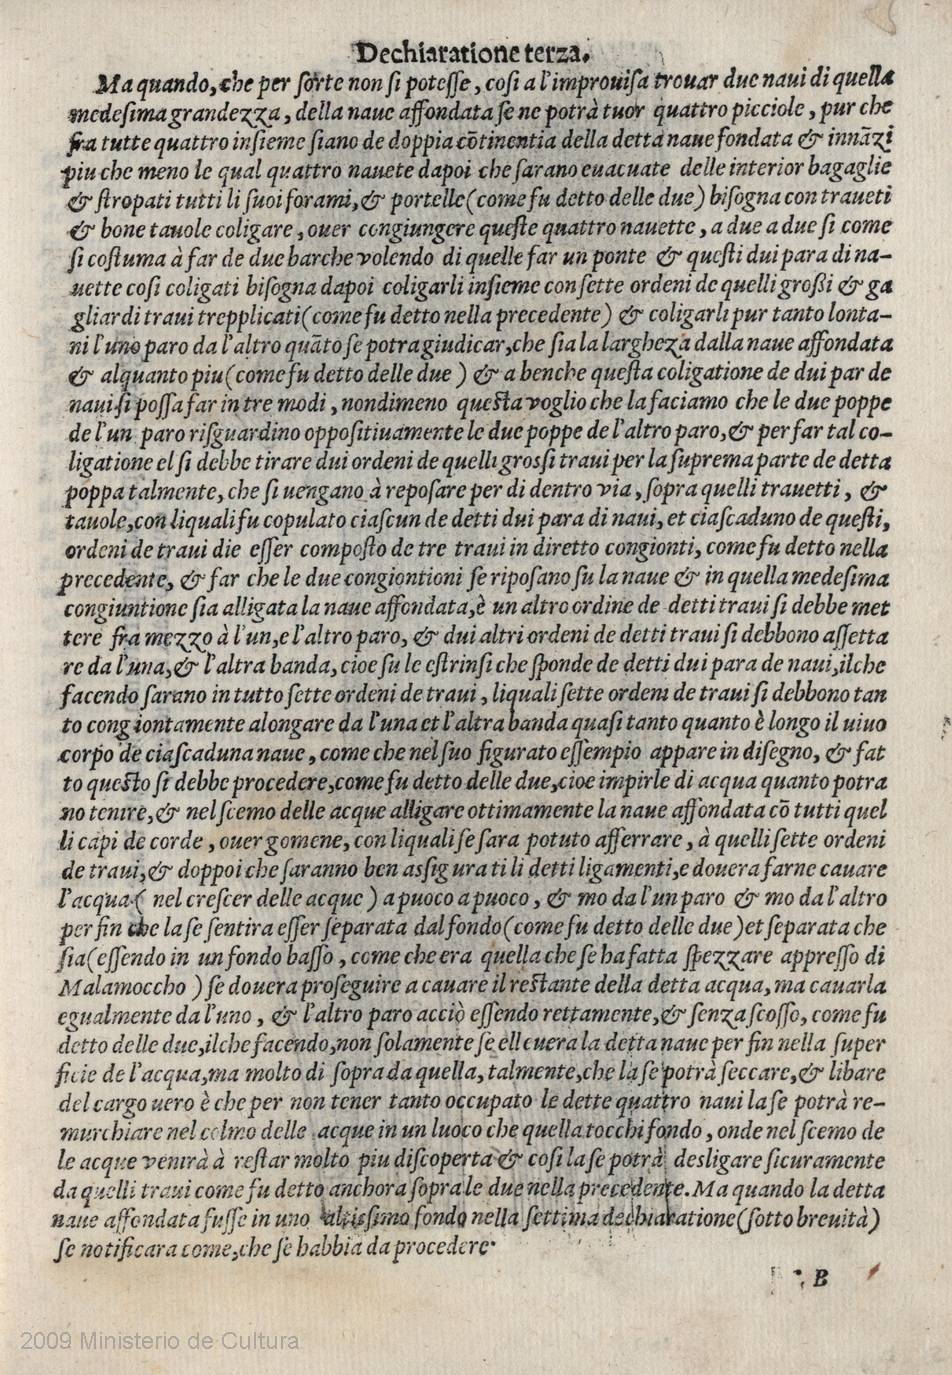 Dechiaratione terza.
Ma quando, che per sorte non si potesse, cosi a l'improuisa trouar due naui di quella
medesima grandezza, della naue affondata se ne potrà tuor quattro picciole, pur che
fra tutte quattro insieme siano de doppia cõtinentia della detta naue fondata & innãzi
piu che meno le qual quattro nauete dapoi che sarano euacuate delle interior bagaglie
& stropati tutti li suoi forami, & portelle (come fu detto delle due) bisogna con traueti
& bone tauole coligare, ouer congiungere queste quattro nauette, a due a due si come
si costuma à far de due barche volendo di quelle far un ponte & questi dui para di na-
uette cosi coligati bisogna dapoi coligarli insieme con sette ordeni de quelli großi & ga
gliardi traui trepplicati (come fu detto nella precedente) & coligarli pur tanto lonta-
ni l'uno paro da l'altro quãto se potra giudicar, che sia la largheza dalla naue affondata
& alquanto piu (come fu detto delle due) & a benche questa coligatione de dui par de
naui si possa far in tre modi, nondimeno questa voglio che la faciamo che le due poppe
de l'un paro risguardino oppositiuamente le due poppe de l'altro paro, & per far tal co-
ligatione el si debbe tirare dui ordeni de quelli grossi traui per la suprema parte de detta
poppa talmente, che si uengano à reposare per di dentro via, sopra quelli trauetti, &
tauole, con liquali fu copulato ciascun de detti dui para di naui, et ciascaduno de questi,
ordeni de traui die esser composto de tre traui in diretto congionti, come fu detto nella
precedente, & far che le due congiontioni se riposano su la naue & in quella medesima
congiuntione sia alligata la naue affondata, è un altro ordine de detti traui si debbe met
tere fra mezzo à l'un, e l'altro paro, & dui altri ordeni de detti traui si debbono assetta
re da l'una, & l'altra banda, cioe su le estrinsiche sponde de detti dui para de naui, ilche
facendo sarano in tutto sette ordeni de traui, liquali sette ordeni de traui si debbono tan
to congiontamente alongare da l'una et l'altra banda quasi tanto quanto è longo il uiuo
corpo de ciascaduna naue, come che nel suo figurato essempio appare in disegno, & fat
to questo si debbe procedere, come fu detto delle due, cioe impirle di acqua quanto potra
no tenire, & nel scemo delle acque alligare ottimamente la naue affondata cõ tutti quel
li capi de corde, ouer gomene, con liquali se sara potuto afferrare, à quelli sette ordeni
de traui, & doppoi che saranno ben assigurati li detti ligamenti, e douera farne cauare
l'acqua (nel crescer delle acque) a puoco a puoco, & mo da l'un paro & mo da l'altro
per fin che la se sentira esser separata dal fondo (come fu detto delle due) et separata che
sia (essendo in un fondo basso, come che era quella che se ha fatta spezzare appresso di
Malamoccho) se douera proseguire a cauare il restante della detta acqua, ma cauarla
egualmente da l'uno, & l'altro paro acciò essendo rettamente, & senza scosso, come fu
detto delle due, ilche facendo, non solamente se elleuera la detta naue per fin nella super
ficie de l'acqua, ma molto di sopra da quella, talmente, che la se potrà seccare, & libare
del cargo uero è che per non tener tanto occupato le dette quattro naui la se potrà re-
murchiare nel colmo delle acque in un luoco che quella tocchi fondo, onde nel scemo de
le acque venirà à restar molto piu discoperta & cosi la se potrà desligare sicuramente
da quelli traui come fu detto anchora sopra le due nella precedente. Ma quando la detta
naue affondata fusse in uno altissimo fondo nella settima dechiaratione (sotto breuità)
se notificara come, che se habbia da procedere.
B
2009 Ministerio de Cultura